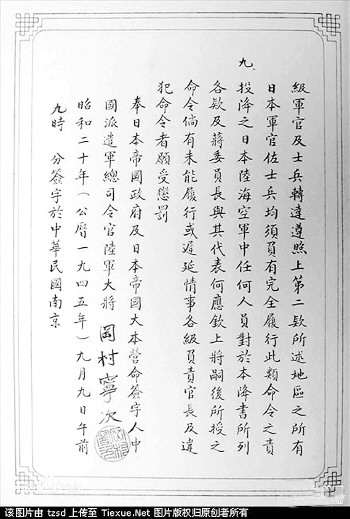 級軍官及士兵轉達遵照上第二款所述地區之所有
日本軍官佐士兵均須負有完全履行此類命令之責
九、投降之日本陸海空軍中任何人員對於本降書所列
各款及蔣委員長與其代表何應欽上將嗣後所授之
命令倘有未能履行或遲延情事各級負責官長及違
犯命令者願受懲罰
奉日本帝國政府及日本帝國大本營命簽字人中
國派遣軍總司令官陸軍大將 岡村寧次
昭和二十年(公曆一九四五年)九月九日午前
九時 分簽字於中華民國南京
该图片由 tzsd 上传至 Tiexue.Net 图片版权归原创者所有